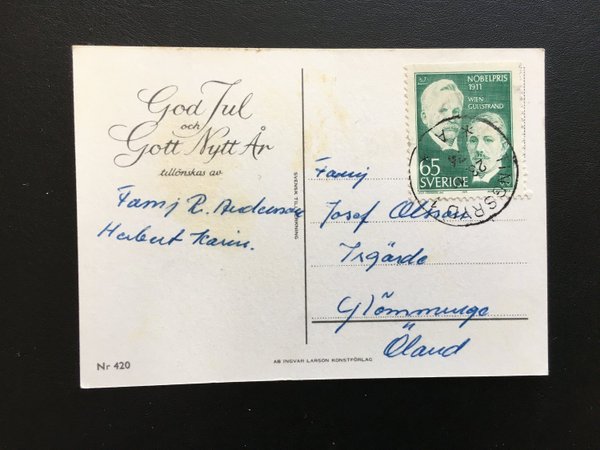 God Jul
och
Gott Nytt År
tillönskas av
Famj R. Andersson
Herbert Karin.
Nr 420
SVENSK TILLVERKNING
AB INGVAR LARSON KONSTFÖRLAG
NOBELPRIS
1911
WIEN
GULLSTRAND
65
SVERIGE
Famj
Josef Olsson
Isgärde
Glömminge
Öland